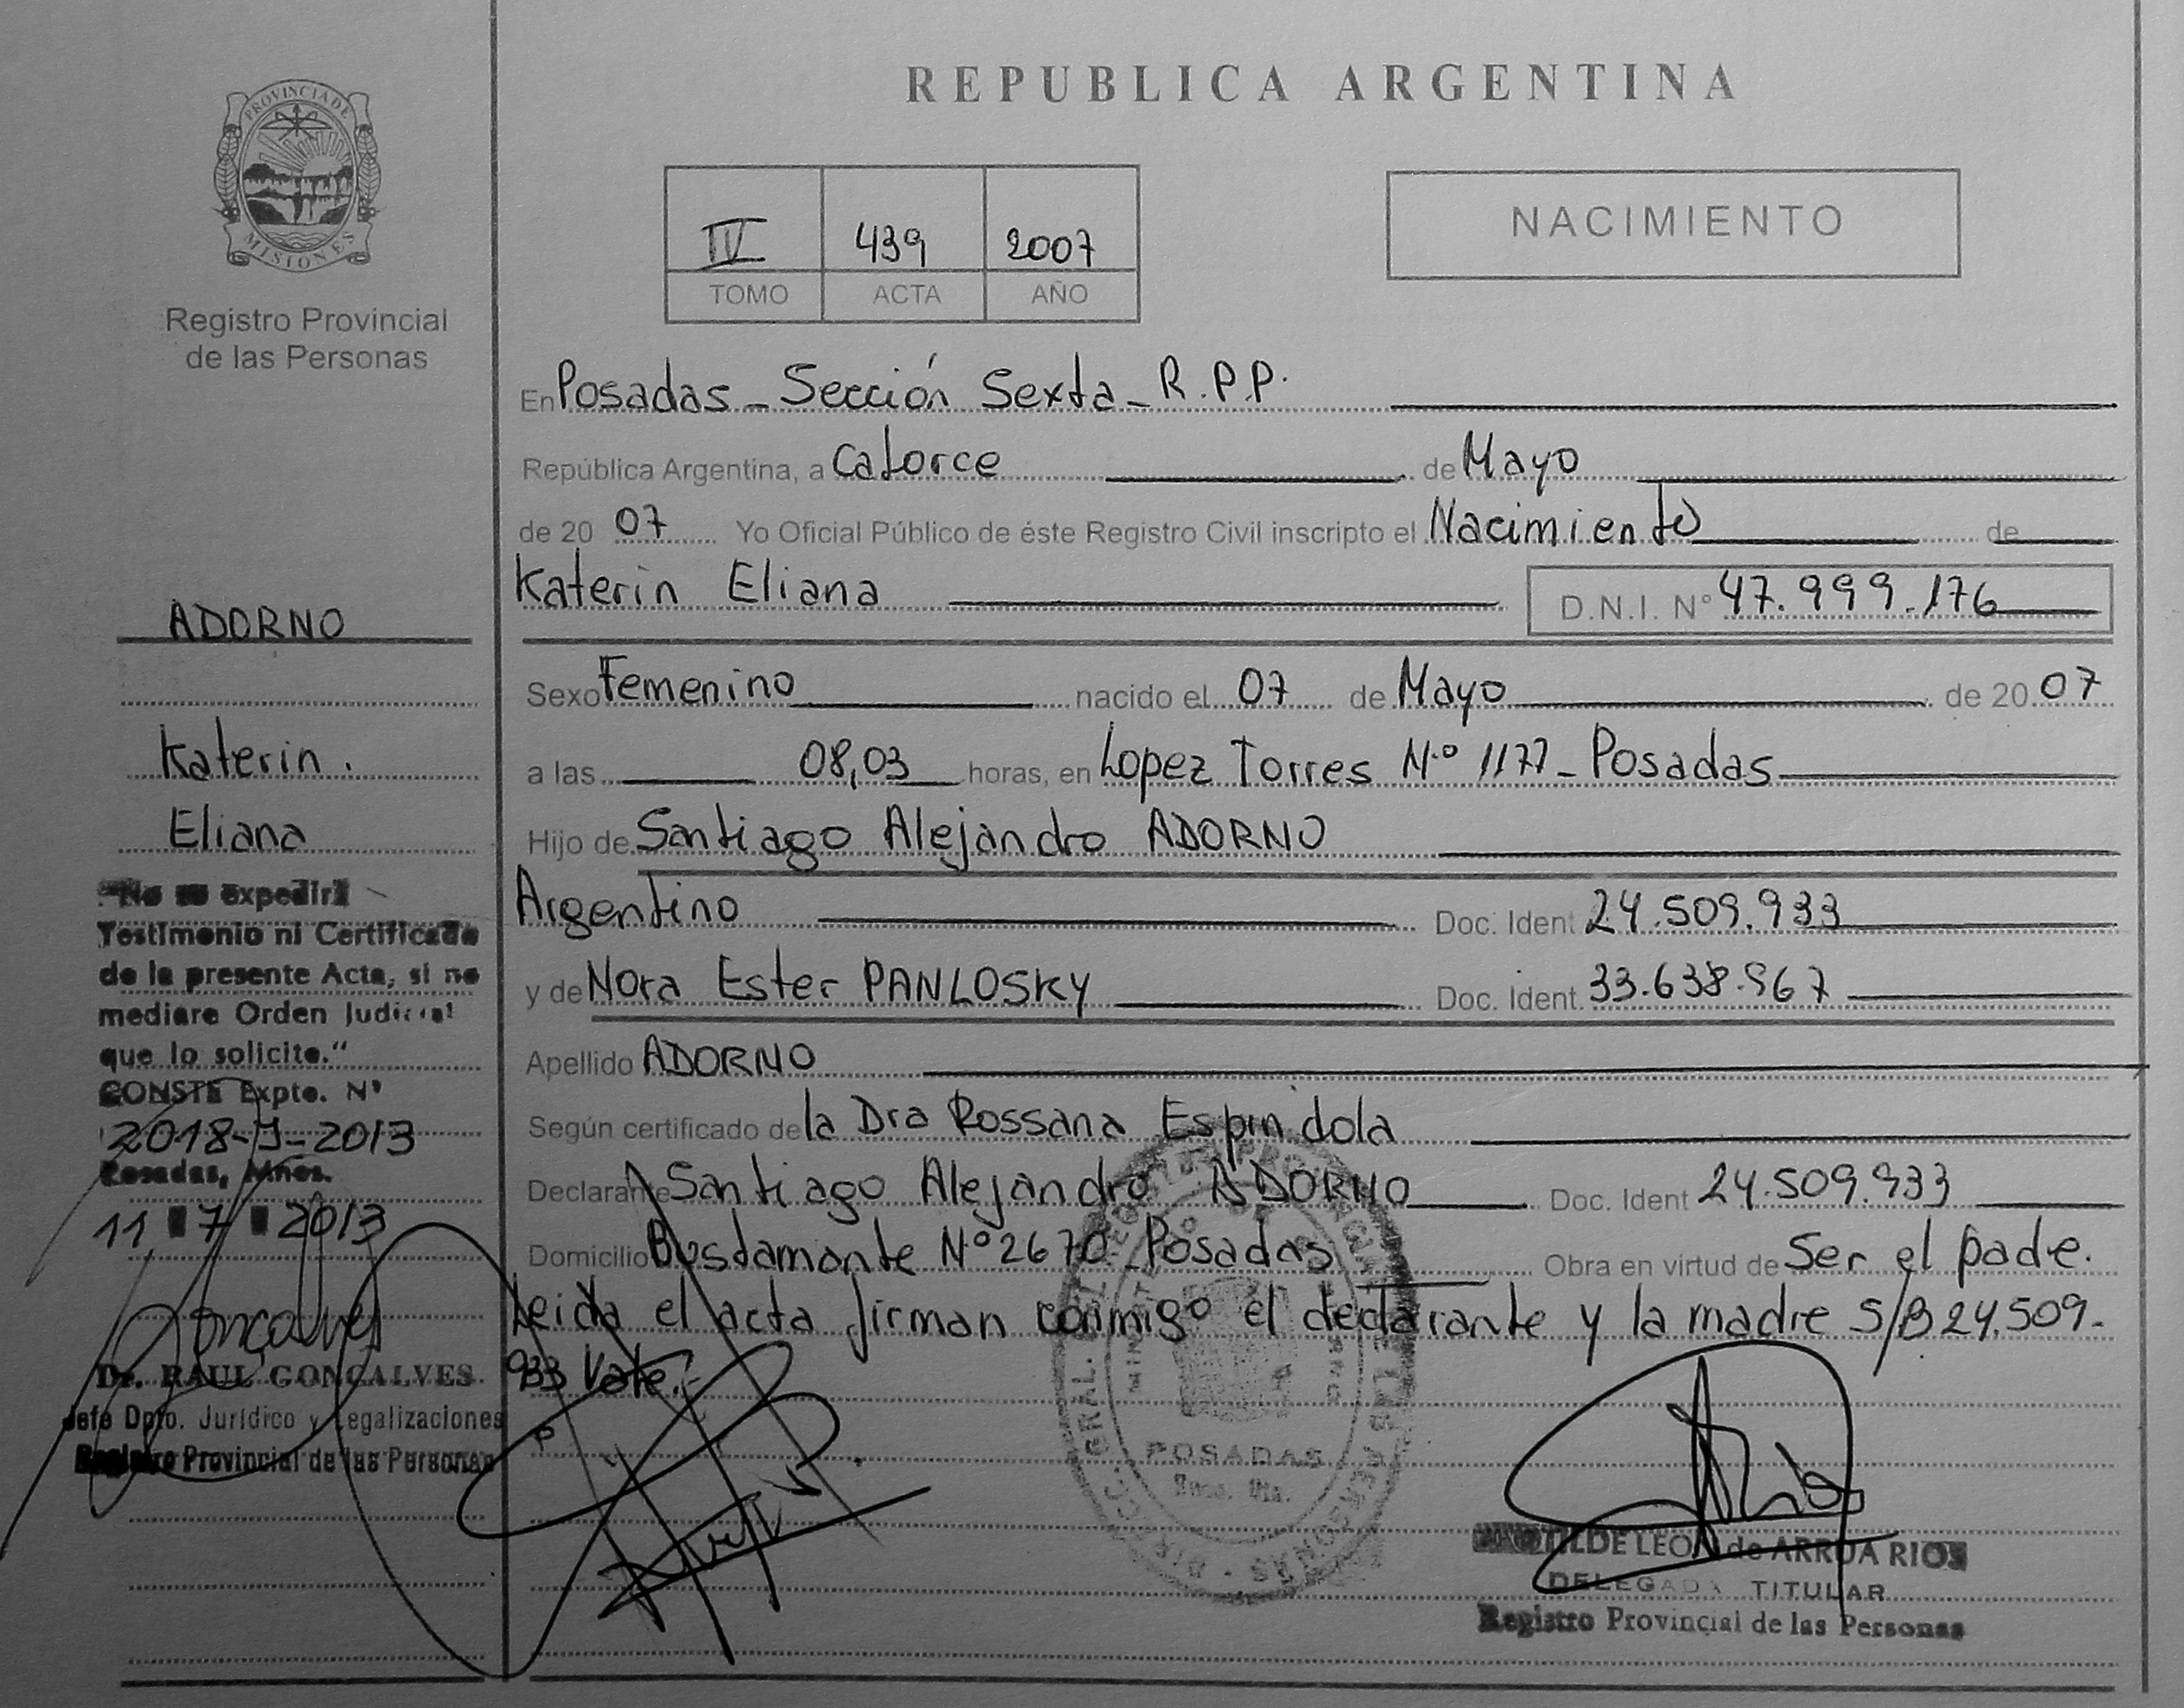 PROVINCIA DE
MISIONES
Registro Provincial
de las Personas
ADORNO
Katerin.
Eliana
"No se expedirá
Testimonio ni Certificado
de la presente Acta, si no
mediare Orden Judicial
que lo solicite."
CONSTE Expte. Nº
2018-J-2013
Posadas, Mnes.
11 7 2013
Goncalves
Dr. RAUL GONCALVES
Jefe Dpto. Jurídico y Legalizaciones
Registro Provincial de las Personas
REPUBLICA ARGENTINA
IV 439 2007
TOMO ACTA AÑO
NACIMIENTO
En Posadas - Sección Sexta - R.P.P.
República Argentina, a Catorce de Mayo
de 2007 Yo Oficial Público de éste Registro Civil inscripto el Nacimiento de
Katerin Eliana D.N.I. Nº 47.999.176
Sexo Femenino nacido el 07 de Mayo de 2007
a las 08,03 horas, en Lopez Torres Nº 1177 - Posadas
Hijo de Santiago Alejandro ADORNO
Argentino Doc. Ident 24.509.933
y de Nora Ester PANLOSKY Doc. Ident. 33.638.967
Apellido ADORNO
Según certificado de la Dra Rossana Espindola
Declarante Santiago Alejandro ADORNO Doc. Ident 24.509.933
Domicilio Bustamante Nº 2670 - Posadas Obra en virtud de Ser el padre.
Leida el acta firman conmigo el declarante y la madre S/B 24.509.-
933 Vale.-
POSADAS
LEON de ARRUA RIOS
DELEGADA TITULAR
Registro Provincial de las Personas